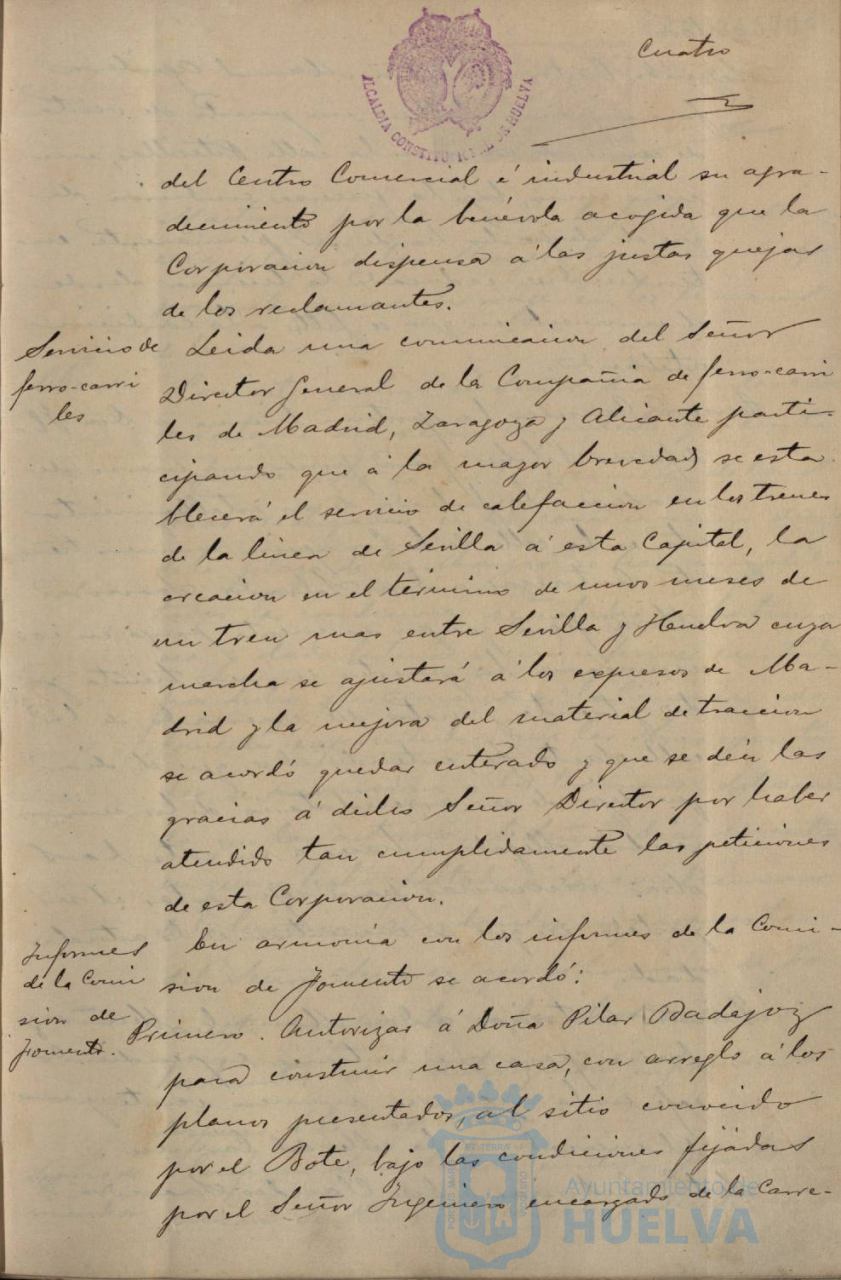 Cuatro
ALCALDIA CONSTITUCIONAL DE HUELVA
del Centro Comercial é industrial su agra-
decimiento por la benévola acogida que la
Corporacion dispensa á las justas quejas
de los reclamantes.
Servicio de
ferro-carri
les
Leida una comunicacion del Señor
Director General de la Compañia de ferro-carri
les de Madrid, Zaragoza y Alicante parti-
cipando que á la mayor brevedad se esta
blecerá el servicio de calefaccion en los trenes
de la linea de Sevilla á esta Capital, la
creacion en el término de unos meses de
un tren mas entre Sevilla y Huelva cuya
marcha se ajustará á los expresos de Ma-
drid y la mejora del material de traccion
se acordó quedar enterado y que se den las
gracias á dicho Señor Director por haber
atendido tan cumplidamente las peticiones
de esta Corporacion.
Informes
de la Comi
sion de
Fomento.
En armonía con los informes de la Comi-
sion de Fomento se acordó:
Primero. Autorizar á Doña Pilar Badajoz
para construir una casa, con arreglo á los
planos presentados, al sitio conocido
por el Bote, bajo las condiciones fijadas
por el Señor Ingeniero encargado de la Carre-
Ayuntamiento de
HUELVA